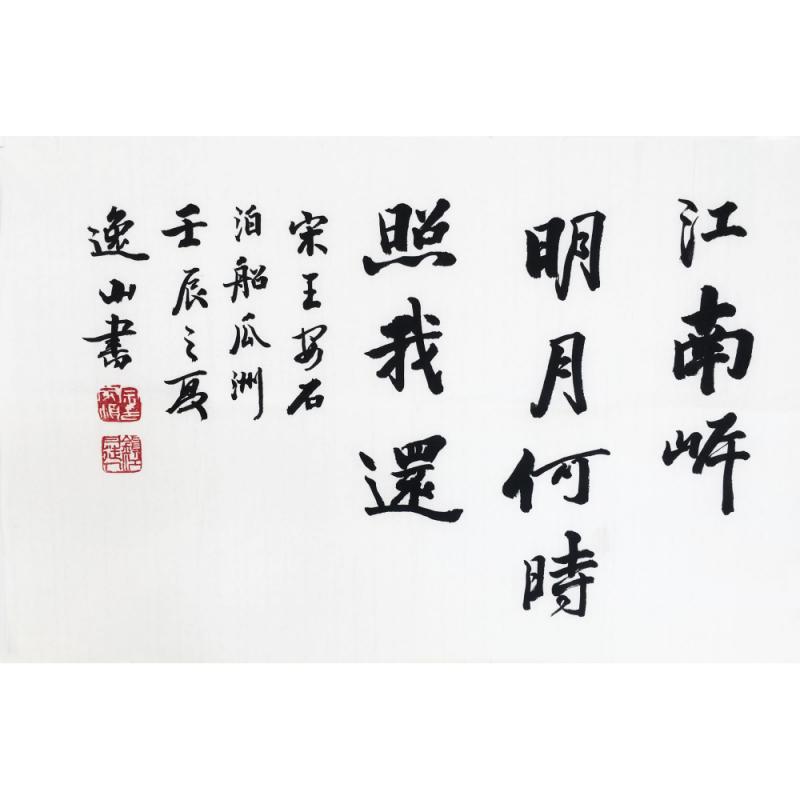 江南岸
明月何時
照我還
宋王安石
泊船瓜洲
壬辰之夏
逸山書